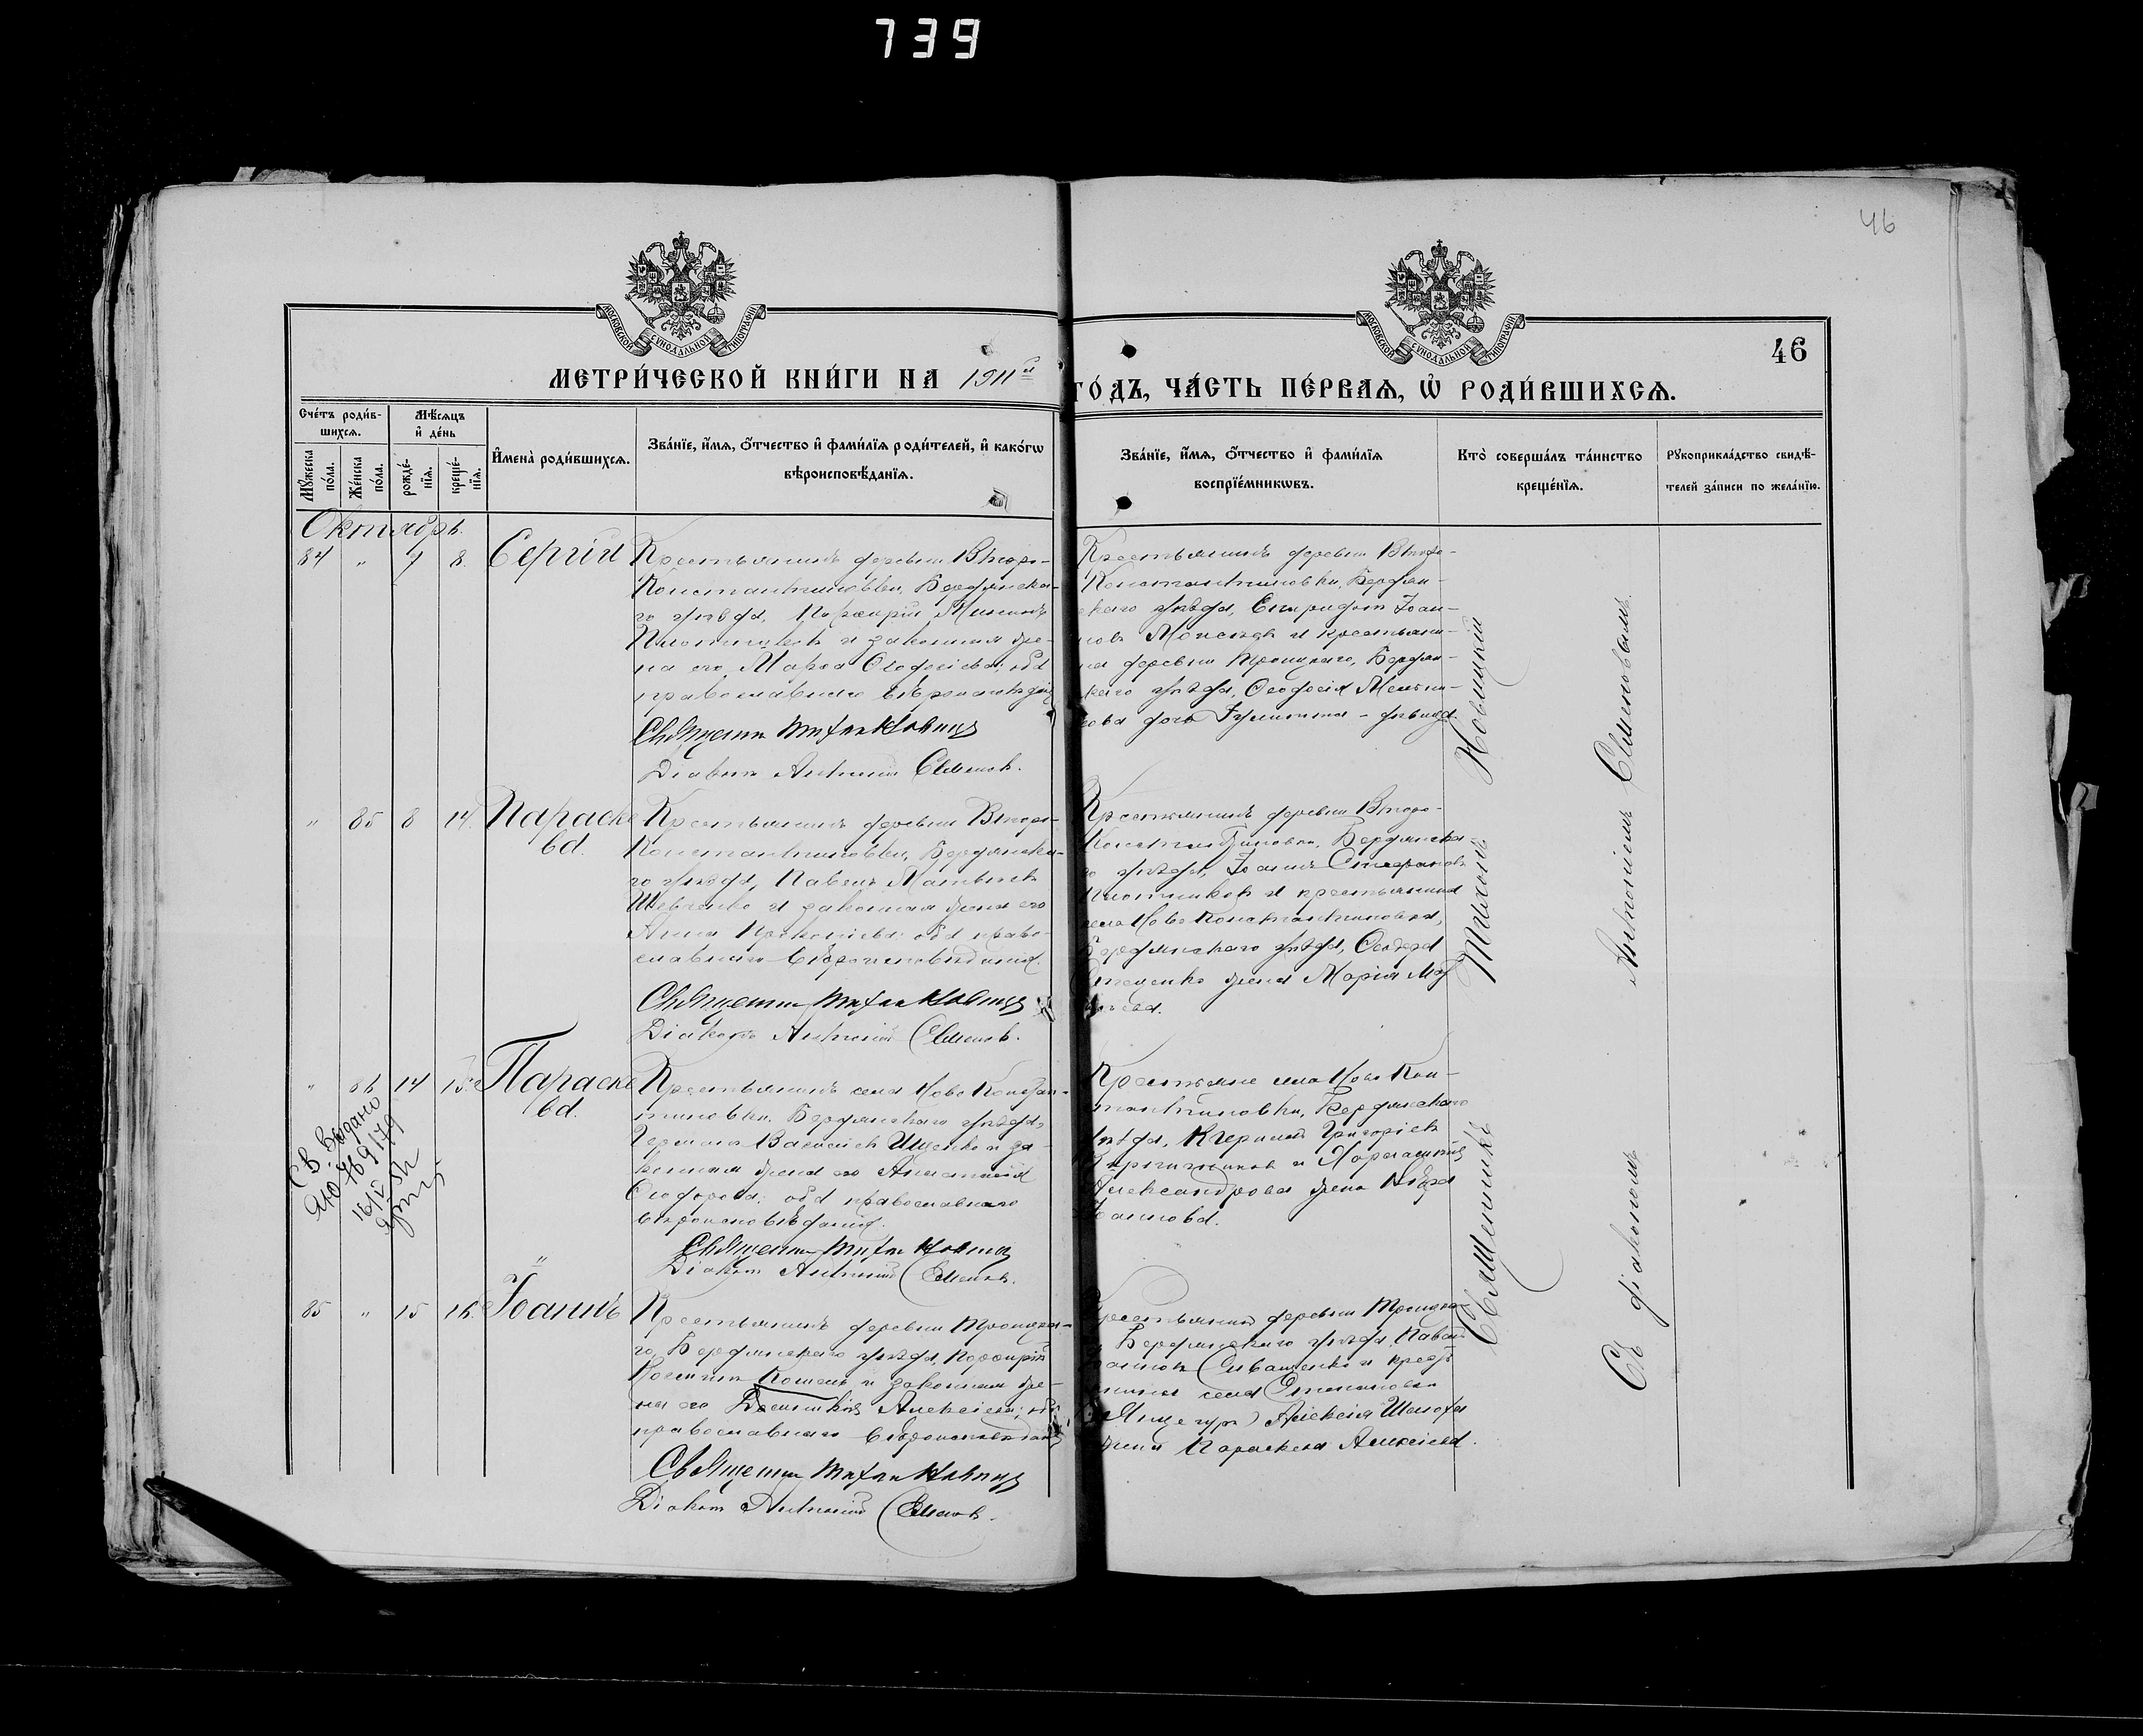 739
46
МОСКОВСКОЙ СѴНОДАЛЬНОЙ ТИПОГРАФІИ
МОСКОВСКОЙ СѴНОДАЛЬНОЙ ТИПОГРАФІИ
46
МЕТРИ́ЧЕСКОЙ КНИ́ГИ НА 1911й
ГО́ДЪ, ЧА́СТЬ ПЕ́РВАѦ, Ѽ РОДИ́ВШИХСѦ.
Сче́тъ роди́в-
шихсѧ.
Мꙋ́жеска по́ла.
Же́нска по́ла.
Мѣ́сѧцъ
и҆ де́нь
рожде́-
нїѧ.
креще́-
нїѧ.
И҆мена̀ роди́вшихсѧ.
Зва́нїе, и҆́мѧ, ѻ҆́тчество и҆ фами́лїѧ роди́телей, и҆ како́гѡ
вѣроисповѣ́данїѧ.
Зва́нїе, и҆́мѧ, ѻ҆́тчество и҆ фами́лїѧ
воспрїе́мникѡвъ.
Кто̀ соверша́лъ та́инство
креще́нїѧ.
Рꙋкоприкла́дство свидѣ́-
телей за́писи по жела́нїю.
Октябрь.
84 " 7 8. Сергій
Крестьянинъ деревни Второ-
Константиновки, Бердянска-
го уѣзда, Порфирій
и законная же-
на его Марѳа Ѳеодосіева; оба
православнаго вѣроисповѣданія
Священникъ Тихонъ Новицкій
Діаконъ Антоній Семеновъ.
Крестьянинъ деревни Второ-
Константиновки, Бердян-
скаго уѣзда, Спиридонъ Іоан-
новъ и крестьяни-
на деревни Троицкаго, Бердян-
скаго уѣзда, Ѳеодосія
дочь - дѣвица.
" 85 8 14. Параске
ва.
Крестьянинъ деревни Второ-
Константиновки, Бердянска-
го уѣзда, Павелъ Матвѣевъ
Шевченко и законная жена его
Анна Прокопіева; оба право-
славнаго вѣроисповѣданія.
Священникъ Тихонъ Новицкій
Діаконъ Антоній Семеновъ.
Крестьянинъ деревни Второ-
Константиновки, Бердянска-
го уѣзда, Іоаннъ Стефановъ
Плотниковъ и крестьянина
села Ново Константиновки,
Бердянскаго уѣзда, Ѳеодора
жена Марія
" 86 14 15. Параске
ва.
Св. Выдано
ЯЮ 769179
16/V 51г
Крестьянинъ села Ново Констан-
тиновки, Бердянскаго уѣзда,
Германъ Василіевъ Ищенко и за-
конная жена его Анастасія
Ѳеодорова; оба православнаго
вѣроисповѣданія.
Священникъ Тихонъ Новицкій
Діаконъ Антоній Семеновъ.
Крестьяне села Ново Кон-
стантиновки, Бердянскаго
уѣзда, Григоріевъ
и
Александрова жена
Іоаннова.
85 " 15 16. Іоаннъ
Крестьянинъ деревни Троицка-
го, Бердянскаго уѣзда, Порфирій
и законная же-
на его Алексіева; оба
православнаго вѣроисповѣданія
Священникъ Тихонъ Новицкій
Діаконъ Антоній Семеновъ.
Крестьянинъ деревни Троицка-
Бердянскаго уѣзда, Павелъ
Іоанновъ Сиващенко и крестья-
нина села Степановки
Алексія
жена Параскева Алексіева.
Священникъ Тихонъ Новицкій
Съ діакономъ Антоніемъ Семеновымъ.